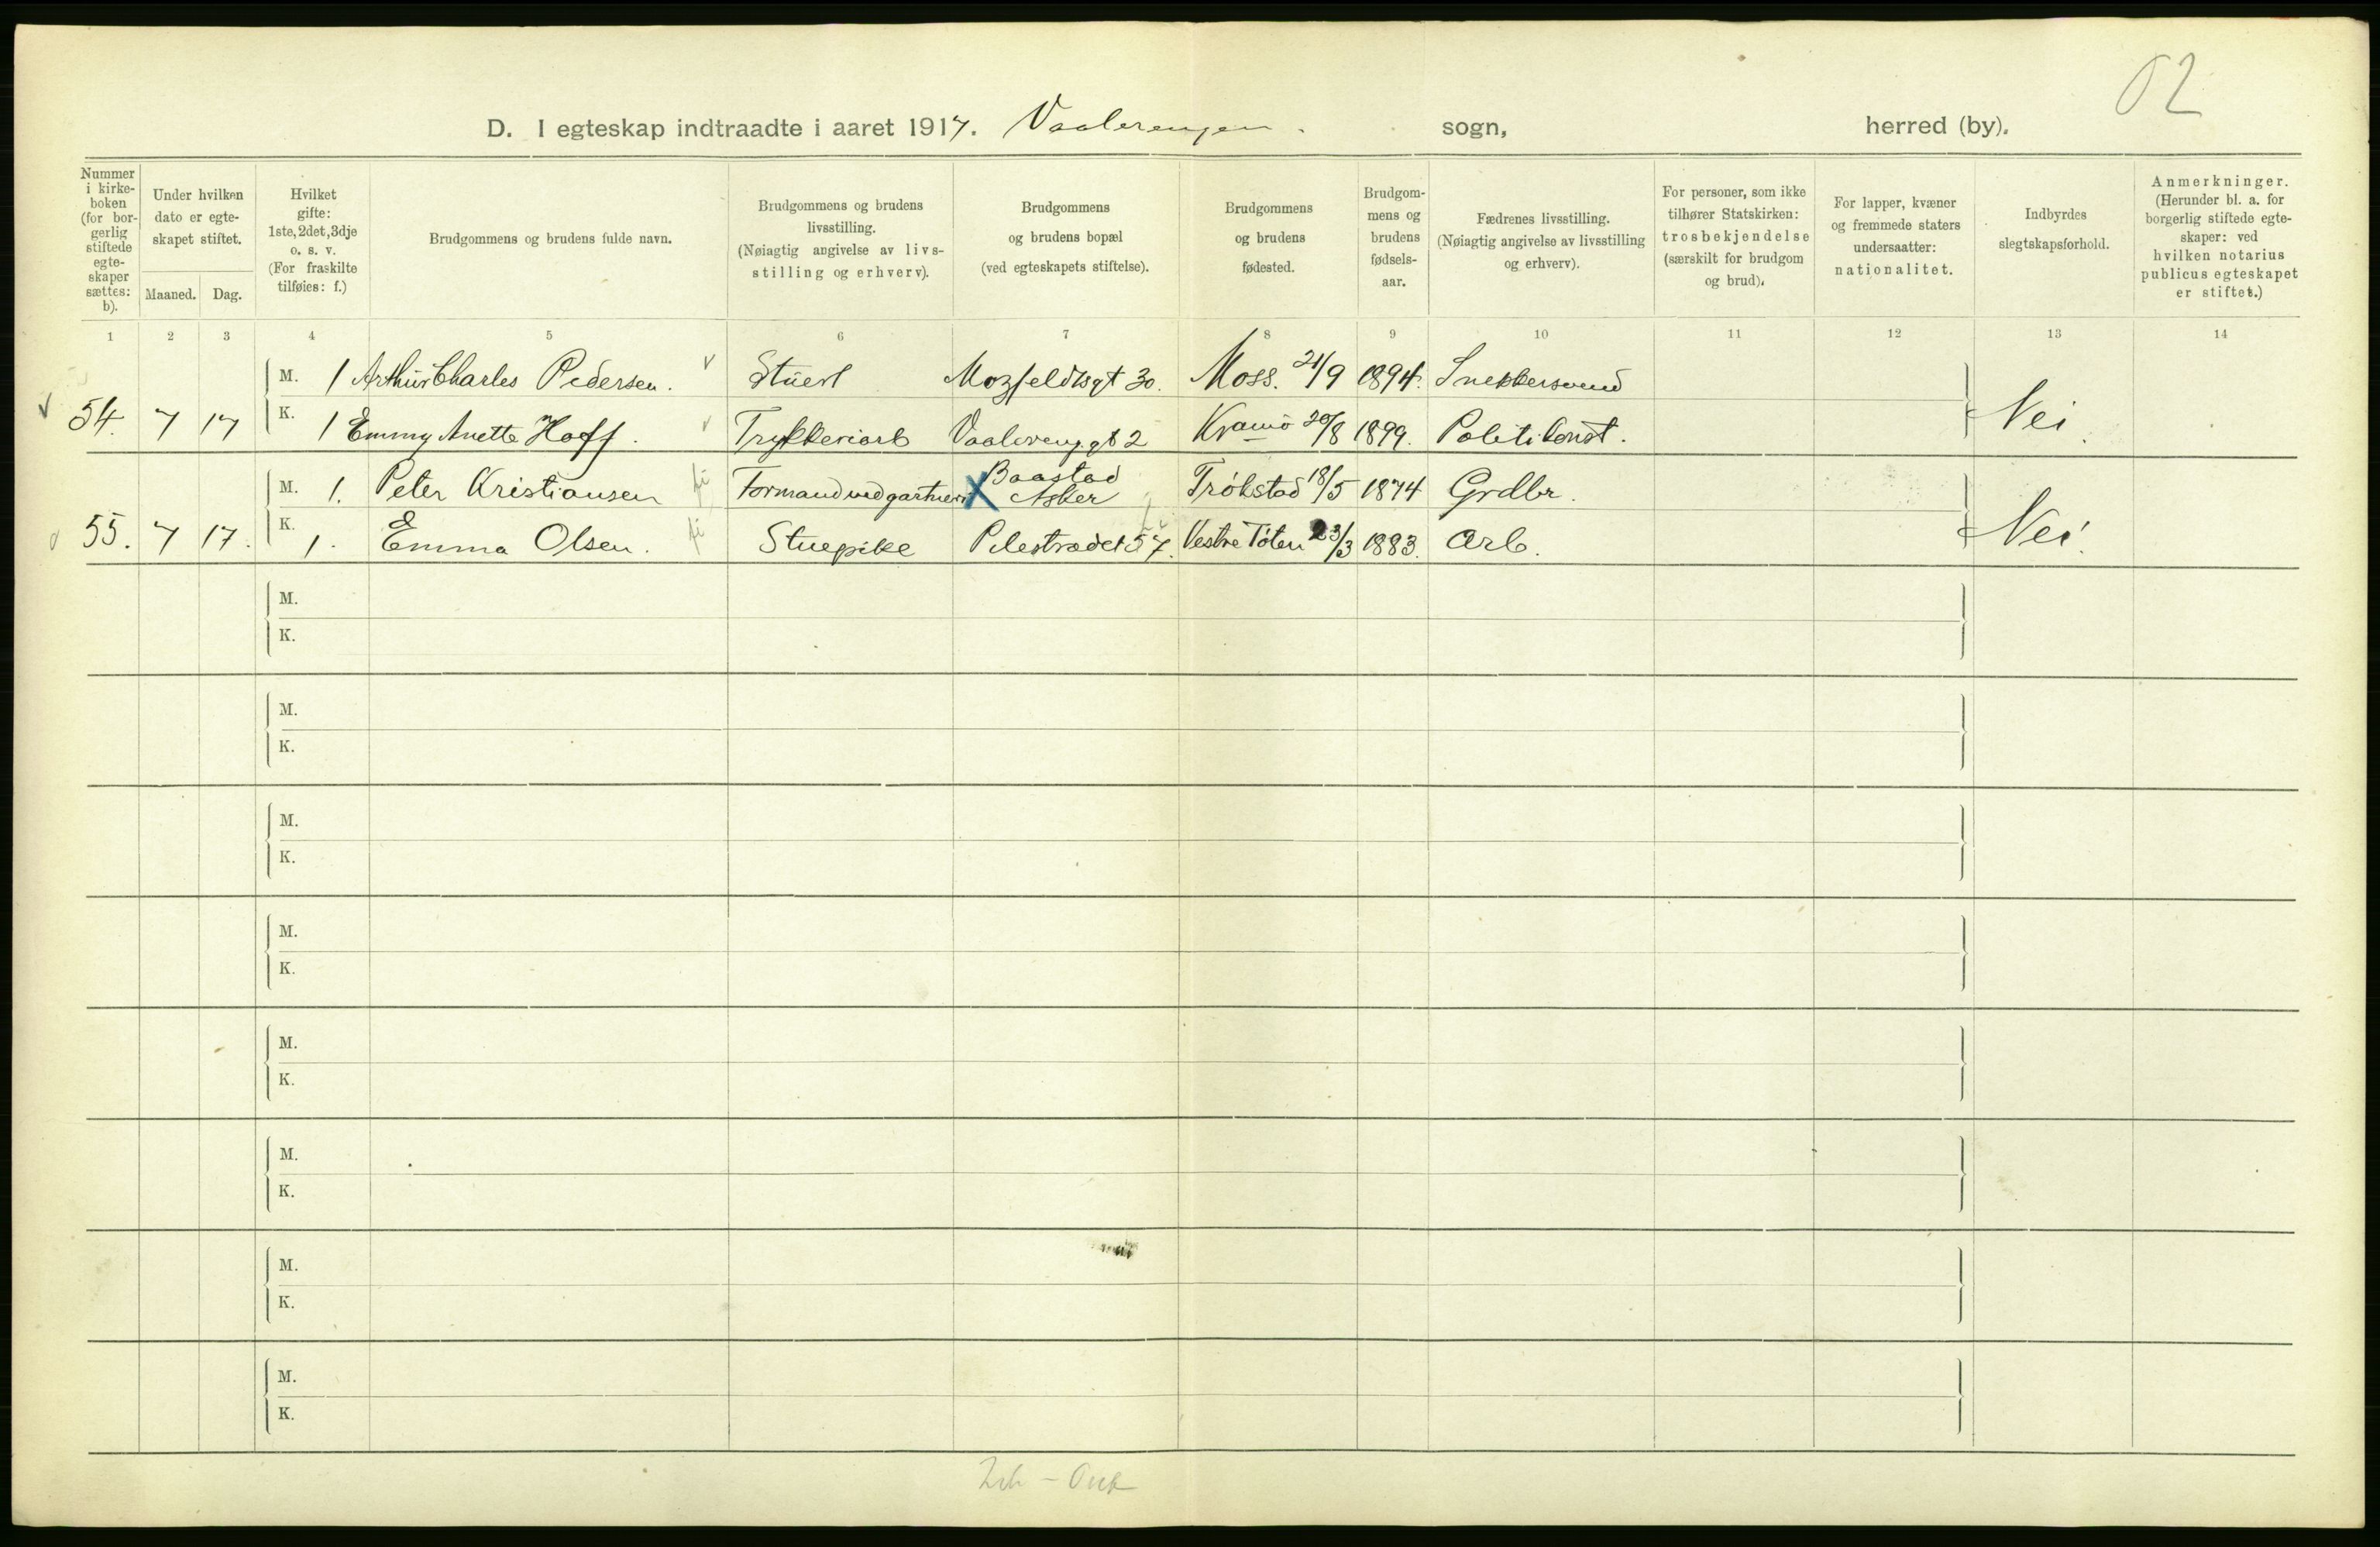 D. I egteskap indtraadte i aaret 1917. Vaalerengen. sogn, herred (by).
Nummer i kirkeboken (for borgerlig stiftede egteskaper sættes: b).
Under hvilken dato er egteskapet stiftet.
Maaned. Dag.
Hvilket gifte: 1ste, 2det, 3dje o. s. v. (For fraskilte tilføies: f.)
Brudgommens og brudens fulde navn.
Brudgommens og brudens livsstilling. (Nøiagtig angivelse av livsstilling og erhverv).
Brudgommens og brudens bopæl (ved egteskapets stiftelse).
Brudgommens og brudens fødested.
Brudgommens og brudens fødselsaar.
Fædrenes livsstilling. (Nøiagtig angivelse av livsstilling og erhverv).
For personer, som ikke tilhører Statskirken: trosbekjendelse (særskilt for brudgom og brud).
For lapper, kvæner og fremmede staters undersaatter: nationalitet.
Indbyrdes slegtskapsforhold.
Anmerkninger. (Herunder bl. a. for borgerlig stiftede egteskaper: ved hvilken notarius publicus egteskapet er stiftet.)
1 2 3 4 5 6 7 8 9 10 11 12 13 14
M. 1 Arthur Charles Pedersen. Stuert Mozfeldtsgt 30. Moss. 21/9 1894. Snekkersvend
54. 7 17 K. 1 Emmy Anette Hoff. Trykkeriarb Vaalerenggt 2 Kr.ania 20/8 1899. Politikonst. Nei.
M. 1. Peter Kristiansen Formand ved gartneri Baastad Asker Trøkstad 18/5 1874 Grdbr.
55. 7 17. K. 1. Emma Olsen. Stuepike Pilestrædet 57. Vestre Toten 23/3 1883. Arb. Nei.
M.
K.
M.
K.
M.
K.
M.
K.
M.
K.
M.
K.
M.
K.
M.
K.